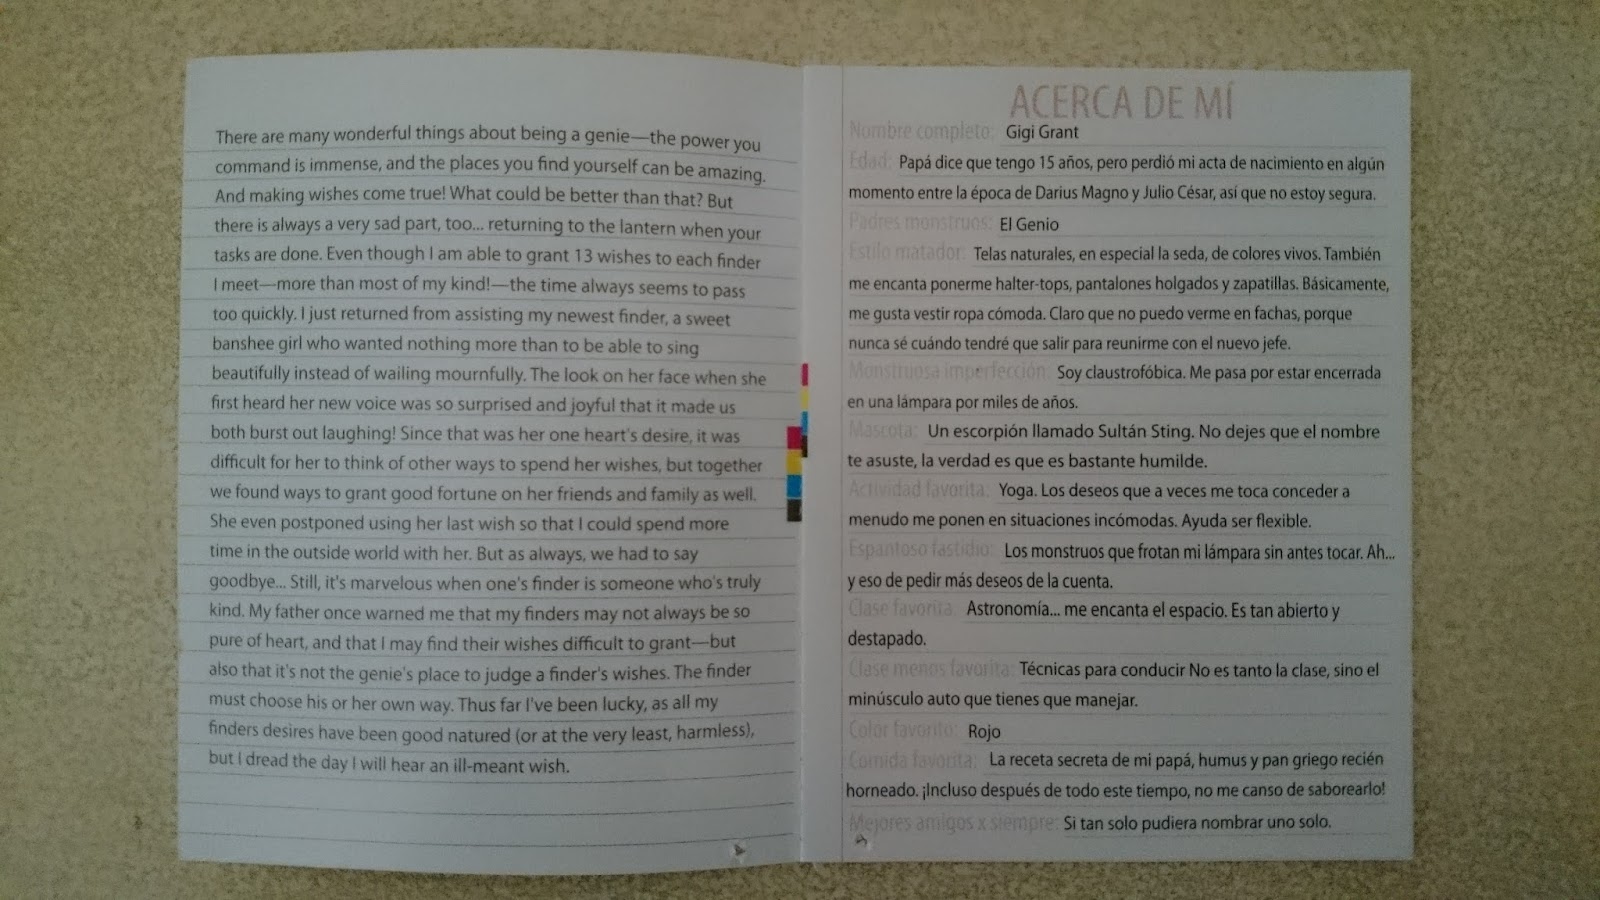 There are many wonderful things about being a genie—the power you
command is immense, and the places you find yourself can be amazing.
And making wishes come true! What could be better than that? But
there is always a very sad part, too... returning to the lantern when your
tasks are done. Even though I am able to grant 13 wishes to each finder
I meet—more than most of my kind!—the time always seems to pass
too quickly. I just returned from assisting my newest finder, a sweet
banshee girl who wanted nothing more than to be able to sing
beautifully instead of wailing mournfully. The look on her face when she
first heard her new voice was so surprised and joyful that it made us
both burst out laughing! Since that was her one heart's desire, it was
difficult for her to think of other ways to spend her wishes, but together
we found ways to grant good fortune on her friends and family as well.
She even postponed using her last wish so that I could spend more
time in the outside world with her. But as always, we had to say
goodbye... Still, it's marvelous when one's finder is someone who's truly
kind. My father once warned me that my finders may not always be so
pure of heart, and that I may find their wishes difficult to grant—but
also that it's not the genie's place to judge a finder's wishes. The finder
must choose his or her own way. Thus far I've been lucky, as all my
finders desires have been good natured (or at the very least, harmless),
but I dread the day I will hear an ill-meant wish.
ACERCA DE MÍ
Nombre completo: Gigi Grant
Edad: Papá dice que tengo 15 años, pero perdió mi acta de nacimiento en algún
momento entre la época de Darius Magno y Julio César, así que no estoy segura.
Padres monstruos: El Genio
Estilo matador: Telas naturales, en especial la seda, de colores vivos. También
me encanta ponerme halter-tops, pantalones holgados y zapatillas. Básicamente,
me gusta vestir ropa cómoda. Claro que no puedo verme en fachas, porque
nunca sé cuándo tendré que salir para reunirme con el nuevo jefe.
Monstruosa imperfección: Soy claustrofóbica. Me pasa por estar encerrada
en una lámpara por miles de años.
Mascota: Un escorpión llamado Sultán Sting. No dejes que el nombre
te asuste, la verdad es que es bastante humilde.
Actividad favorita: Yoga. Los deseos que a veces me toca conceder a
menudo me ponen en situaciones incómodas. Ayuda ser flexible.
Espantoso fastidio: Los monstruos que frotan mi lámpara sin antes tocar. Ah...
y eso de pedir más deseos de la cuenta.
Clase favorita: Astronomía... me encanta el espacio. Es tan abierto y
destapado.
Clase menos favorita: Técnicas para conducir No es tanto la clase, sino el
minúsculo auto que tienes que manejar.
Color favorito: Rojo
Comida favorita: La receta secreta de mi papá, humus y pan griego recién
horneado. ¡Incluso después de todo este tiempo, no me canso de saborearlo!
Mejores amigos x siempre: Si tan solo pudiera nombrar uno solo.